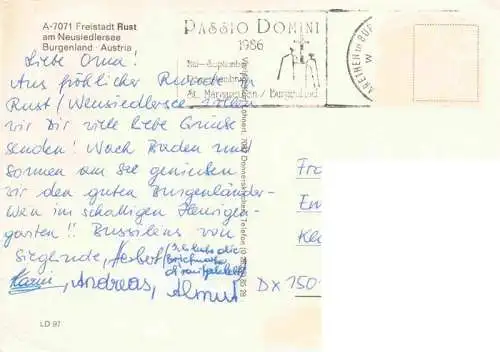 A-7071 Freistadt Rust
am Neusiedlersee
Burgenland · Austria
PASSIO DOMINI
1986
Mai-September
St. Margarethen / Burgenland
Liebe Oma!
Aus fröhlicher Runde in
Rust / Neusiedlersee wollen
wir Dir viele liebe Grüsse
senden! Nach Baden und
Sonnen am See genießen
wir den guten Burgenländer-
Wein im schattigen Heurigen-
garten!! Bussilens von
Sieglinde, Herbert
(ich habe die
Briefmarke
draufgeklebt)
Karin, Andreas, Almut
Fr
En
Kl
DX 150
LD 97